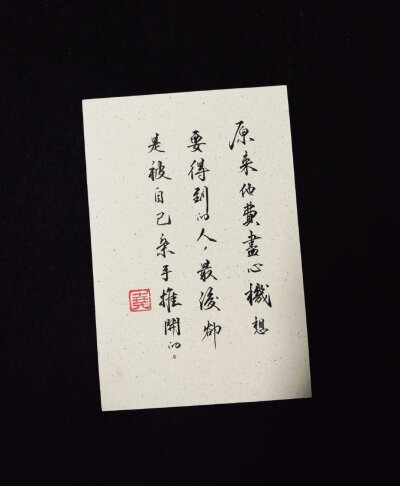 原来他費盡心機想
要得到的人，最後卻
是被自己亲手推開的。